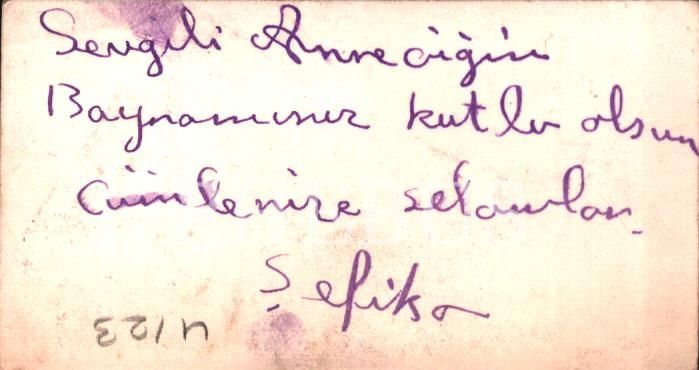 Sevgili Anneciğim
Bayramınız kutlu olsun
Cümlenize selamlar.
Şefika
4/23